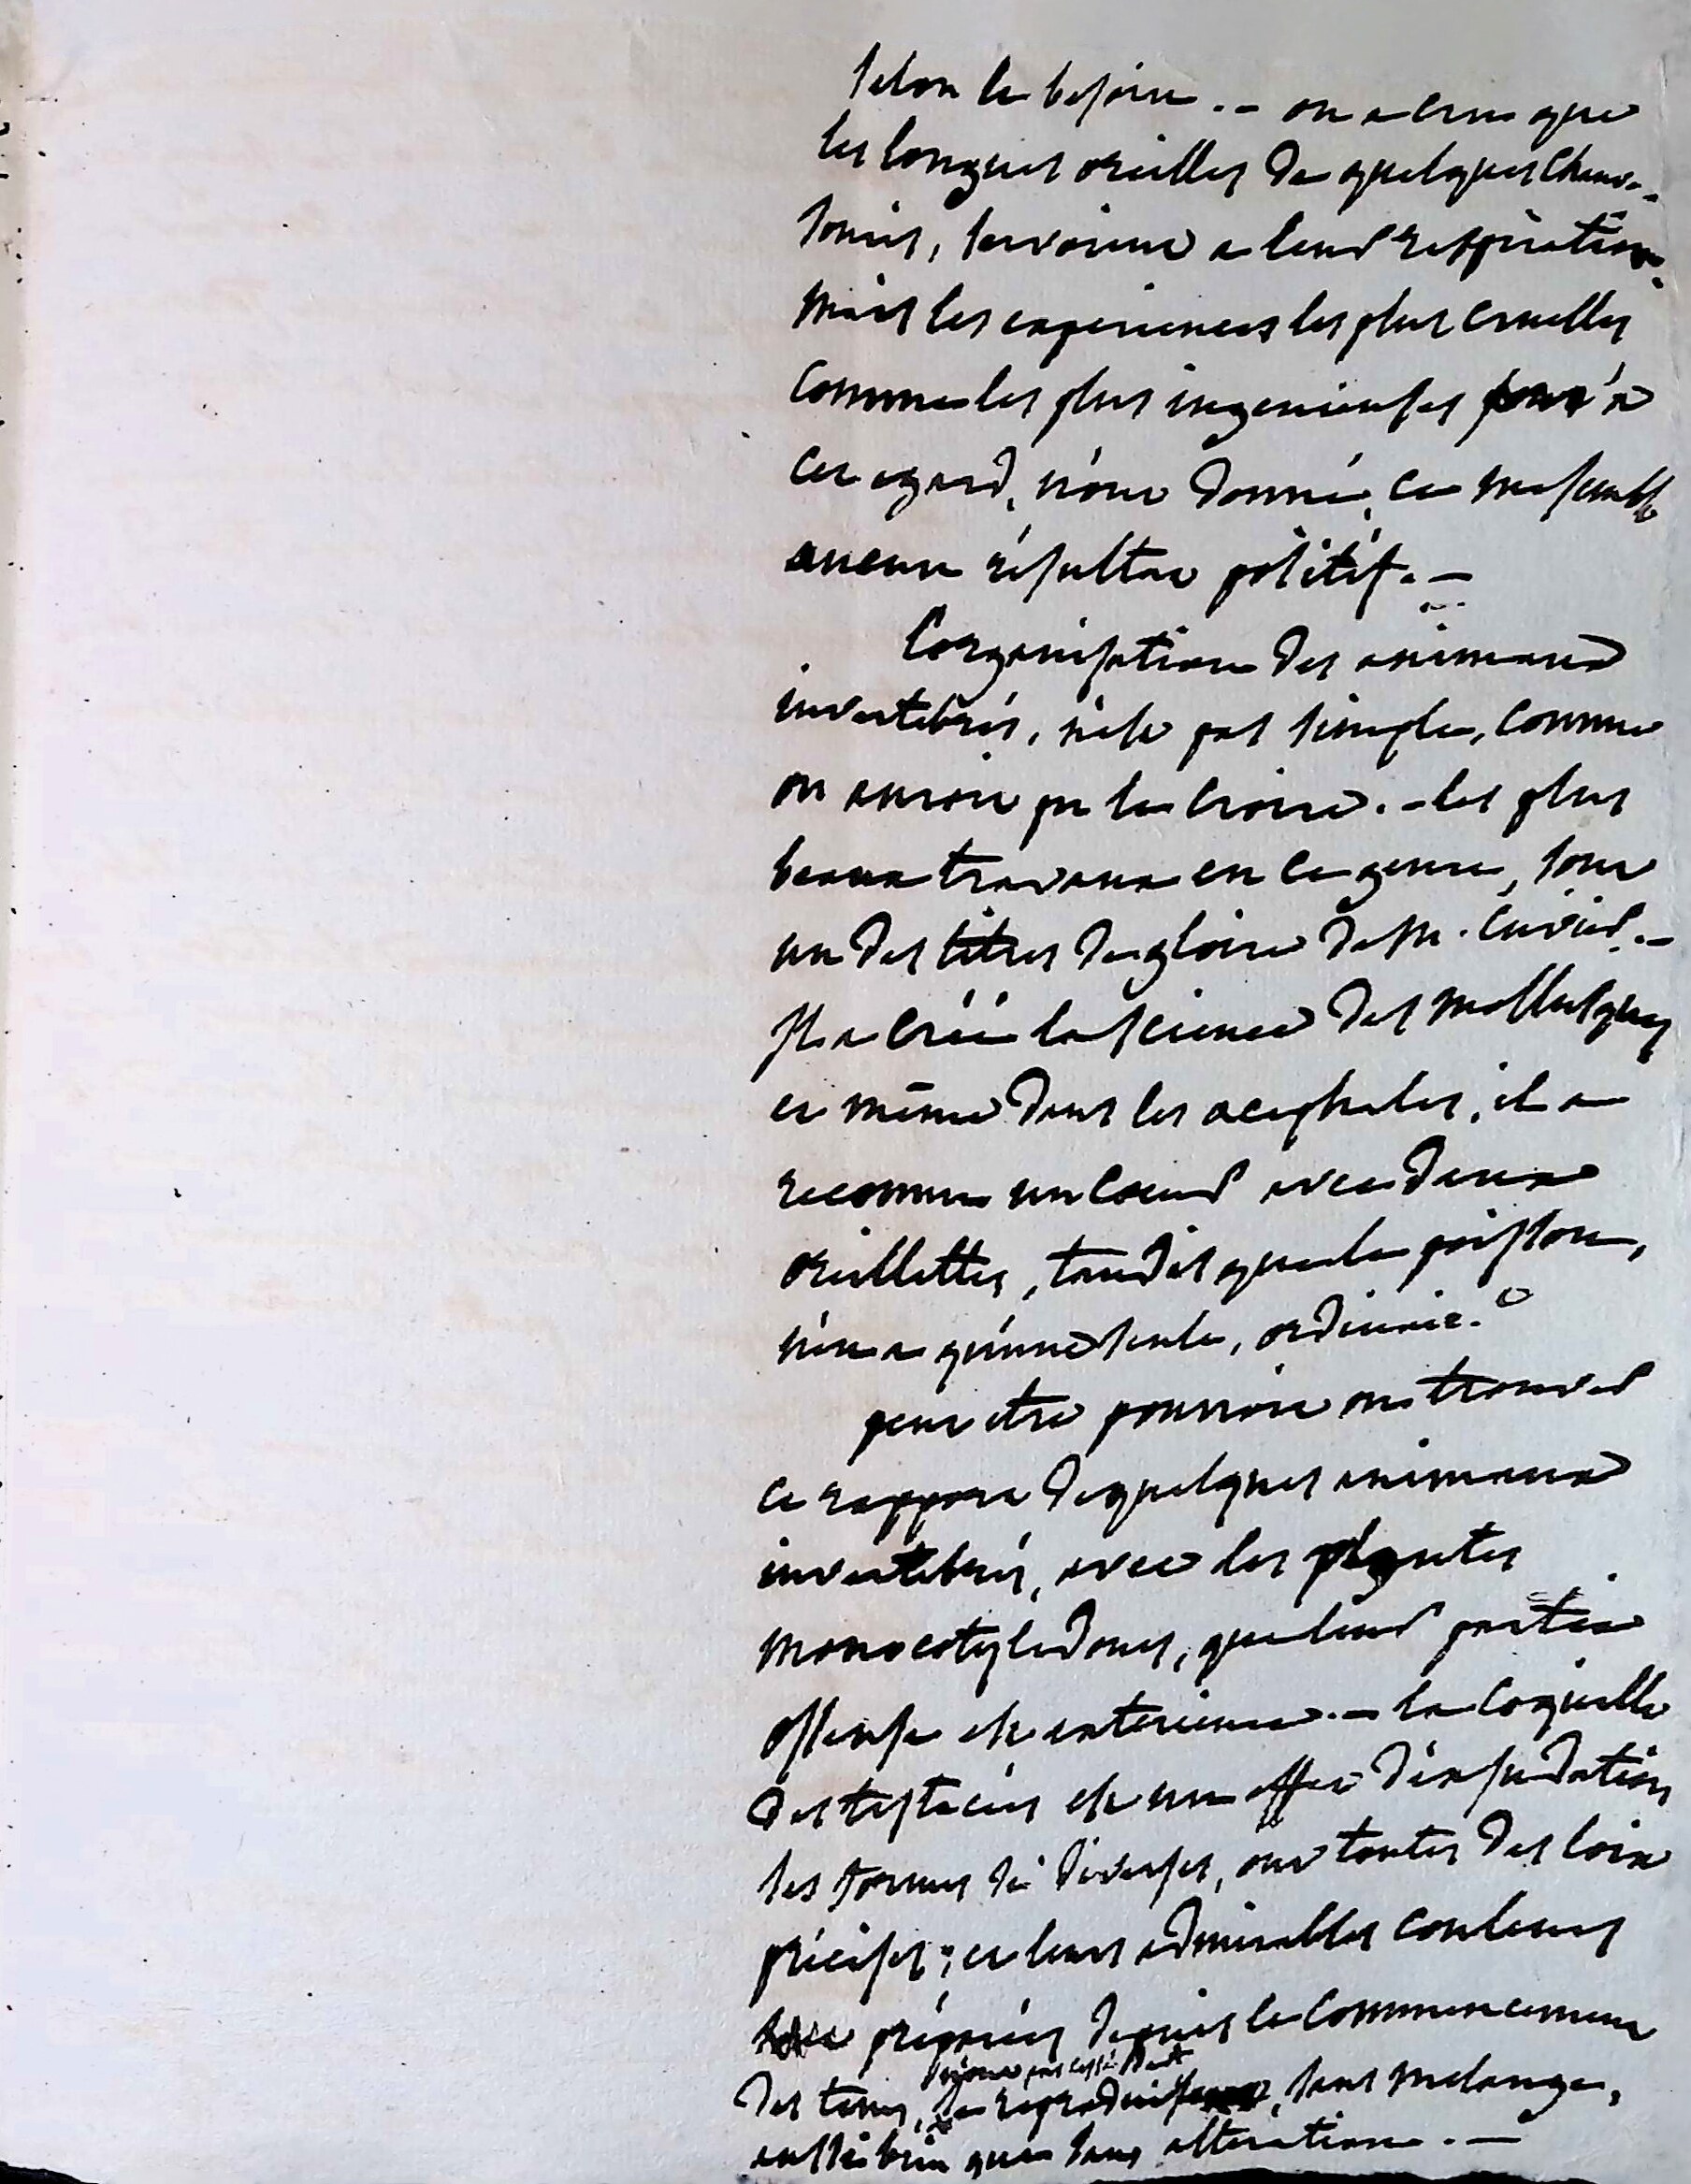 selon le besoin. - on a cru que
les longues oreilles de quelques chauve-
souris, servoient a leur respiration.
mais les experiences les plus cruelles
comme les plus ingenieuses à
cet egard, n'ont donné, ce me semble
aucun résultat positif. -
L'organisation des animaux
invertebrés, n'est pas simple, comme
on auroit pu le croire. - les plus
beaux travaux en ce genre, sont
un des titres de gloire de M. Cuvier. -
Il a créé la science des mollusques
et même dans les acephales, il a
reconnu un coeur avec deux
oreillettes, tandis que le poisson,
n'en a qu'une seule, ordinaire.
peut etre pourroit on trouver
ce rapport de quelques animaux
invertebrés, avec les plantes
monocotyledones, que leur partie
osseuse est exterieure. - la coquille
des testacées est un effet d'exsudation
ses formes si diverses, ont toutes des loix
précises ; et leurs admirables couleurs
préparées depuis le commencement
n'ont pas cessé
des tems, se reproduisent, sans melange,
aussi bien que sans alteration. -